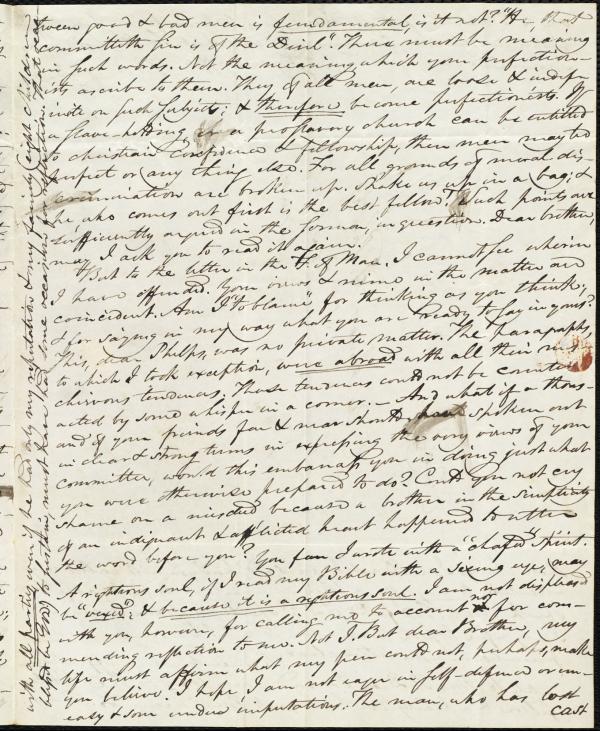 tween good & bad men is fundamental, is it not? "He that
committeth sin is of the Devil". There must be meaning
in such words. Not the meaning, which your perfection-
ists ascribe to them. They of all men, are loose & indef-
inite on such subjects; & therefore become perfectionists. If
a slave-holding, or a proslavery church can be entitled
to christian confidence & fellowship, then men may be
perfect or any thing else. For all grounds of moral dis-
crimination are broken up. Shake us up in a bag; &
he, who comes out first is the best fellow. Such points are
sufficiently argued in the sermon, in question. Dear brother,
may I ask you to read it again.
But to the letter in the F. of Man. I cannot see wherein
I have offended. Your views & mine in the matter are
coincident. Am I "to blame" for thinking as you think;
& for saying in my way what you are ready to say in yours?
This, dear Phelps, was no private matter. The paragraphs,
to which I took exception, were abroad with all their mis-
chievous tendencies. Those tendencies could not be counter-
acted by some whisper in a corner. — And what if a thous-
and of your friends far & near should have spoken out
in clear & strong terms in expressing the very views of your
committee, would this embarrass you in doing just what
you were otherwise prepared to do? Could you not cry
shame on a misdeed because a brother in the simplicity
of an indignant & afflicted heart happened to utter
the word before you? You fear I wrote with a "chafed" spirit.
A righteous soul, if I read my Bible with a seeing eye, may
be "vexed"; & because it is a righteous soul. I am not displeased
with you, however, for calling me to account nor for com-
mending reflection to me. Not I. But dear Brother, my
life must affirm what my pen could not, perhaps, make
you believe. I hope I am not eager in self-defence or un-
easy & sour under imputations. The man, who has lost
cast
with all parties, even if he had only my reputation & my family (eight children
beyond in God) to sustain, must have had some occasion for reflection. That